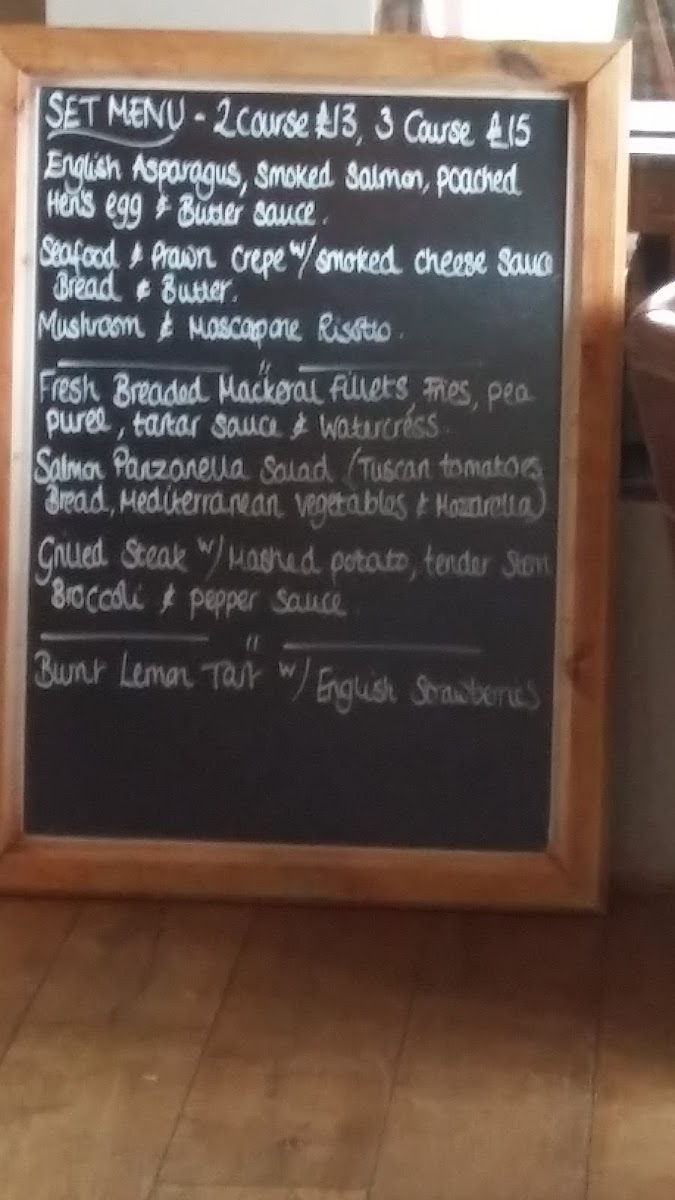 SET MENU - 2 course £13, 3 Course £15
English Asparagus, smoked salmon, poached
Hen's egg & Butter sauce.
Seafood & Prawn crepe w/ smoked cheese sauce
Bread & Butter.
Mushroom & Mascapone Risotto.
"
Fresh Breaded Mackeral fillets, Fries, pea
puree, tartar sauce & watercress.
Salmon Panzanella Salad (Tuscan tomatoes
Bread, Mediterranean vegetables & Mozzarella)
Grilled Steak w/ Mashed potato, tender stem
Broccoli & pepper sauce
"
Burnt Lemon Tart w/ English Strawberries